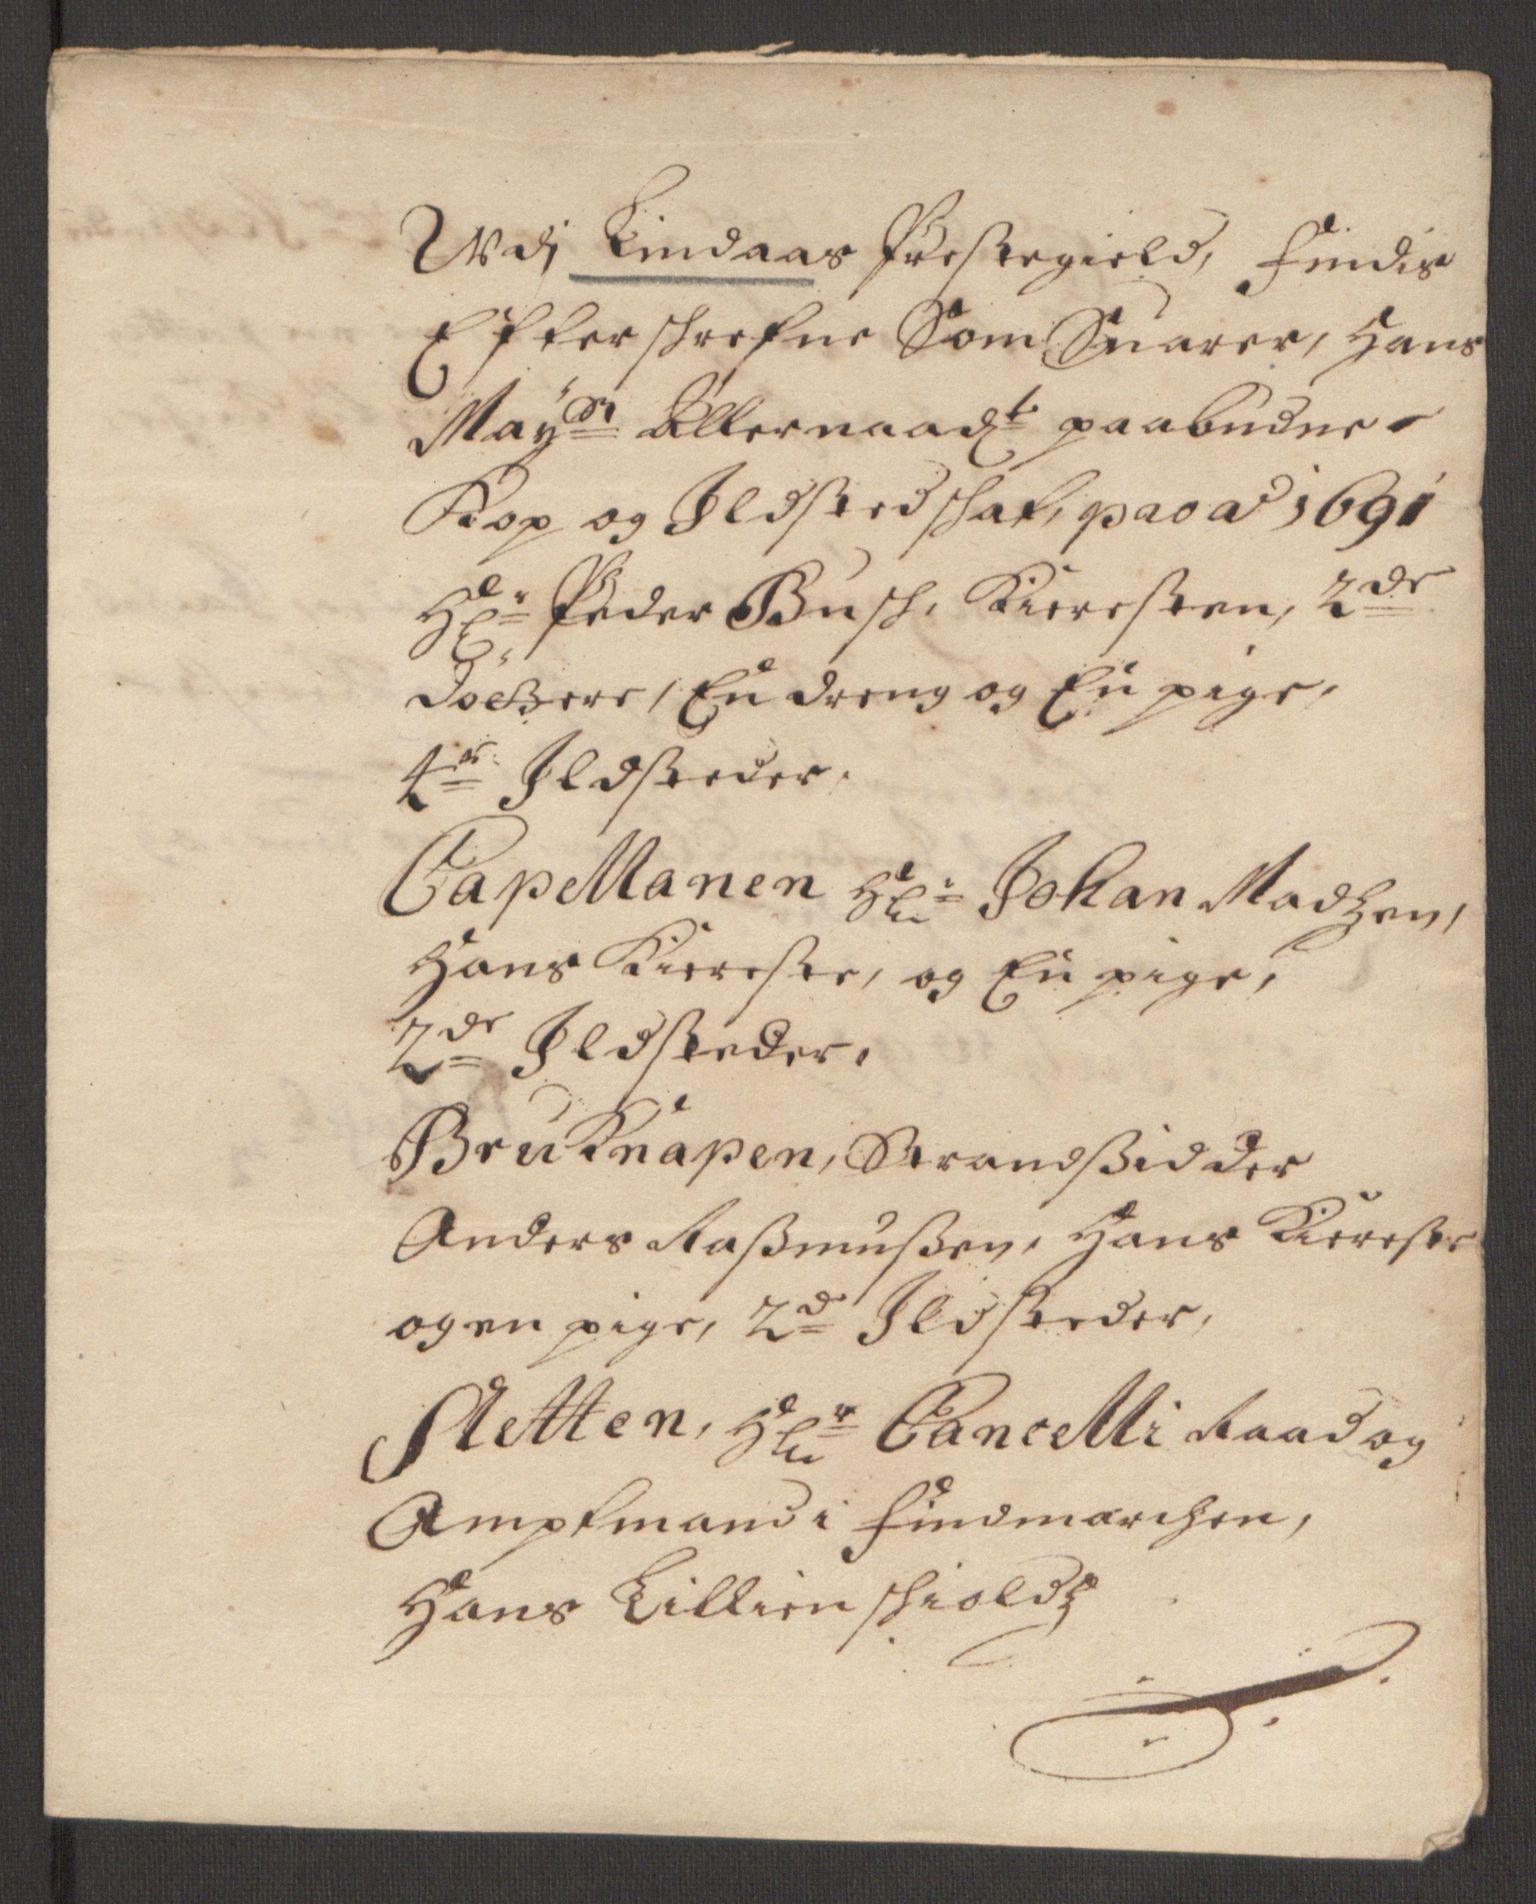 Udj Lindaas Prestegield, Findis
Efterschrefne Som Suarer, Hans
Mayst Allernaadt paabudne
Kop og Ildsted schat, pro Aō 1691
Hr Peder Busch, Kieresten, 2de
Dottere, En dreng og En pige,
4re Ildsteder.
Capellanen Hr Johan Madzen,
Hans Kiereste, og En pige,
2de Ildsteder.
Bruknapen, Strandsidder
Anders Rasmussen, Hans Kiereste
og en pige, 2de Ildsteder,
Sletten, Hr Cancelli Raad og
Amptmand i Findmarchen,
Hans Lillienschiold